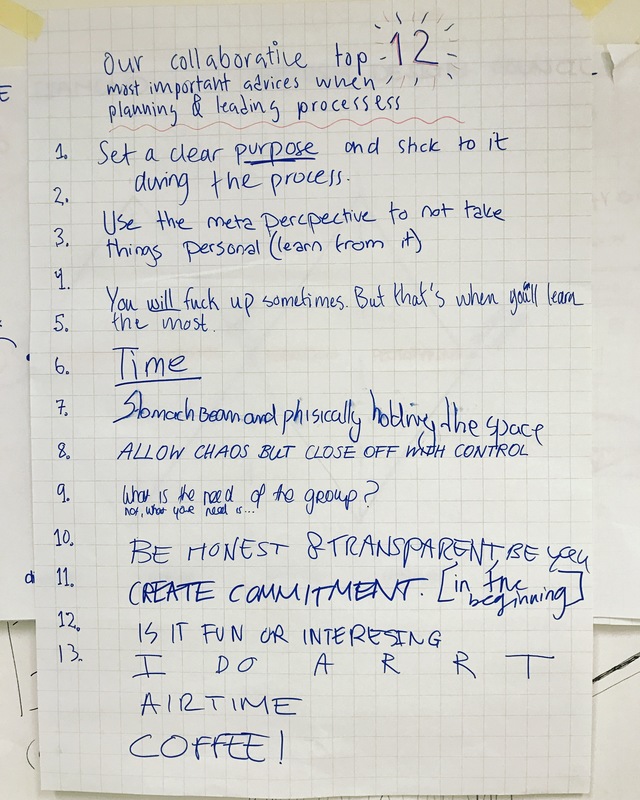 Our collaborative top 12
most important advices when
planning & leading processess
1. Set a clear purpose and stick to it
during the process.
2.
Use the meta percpective to not take
3. things personal (learn from it)
4.
You will fuck up sometimes. But that's when you'll learn
5. the most.
6. Time
7. Stomach beam and phisically holding the space
8. ALLOW CHAOS BUT CLOSE OFF WITH CONTROL
9. What is the need of the group?
not, what your need is...
10. BE HONEST & TRANSPARENT, BE you
11. CREATE COMMITMENT. [in the
beginning]
12. IS IT FUN OR INTERESING
13. I DO A R R T
AIRTIME
COFFEE!